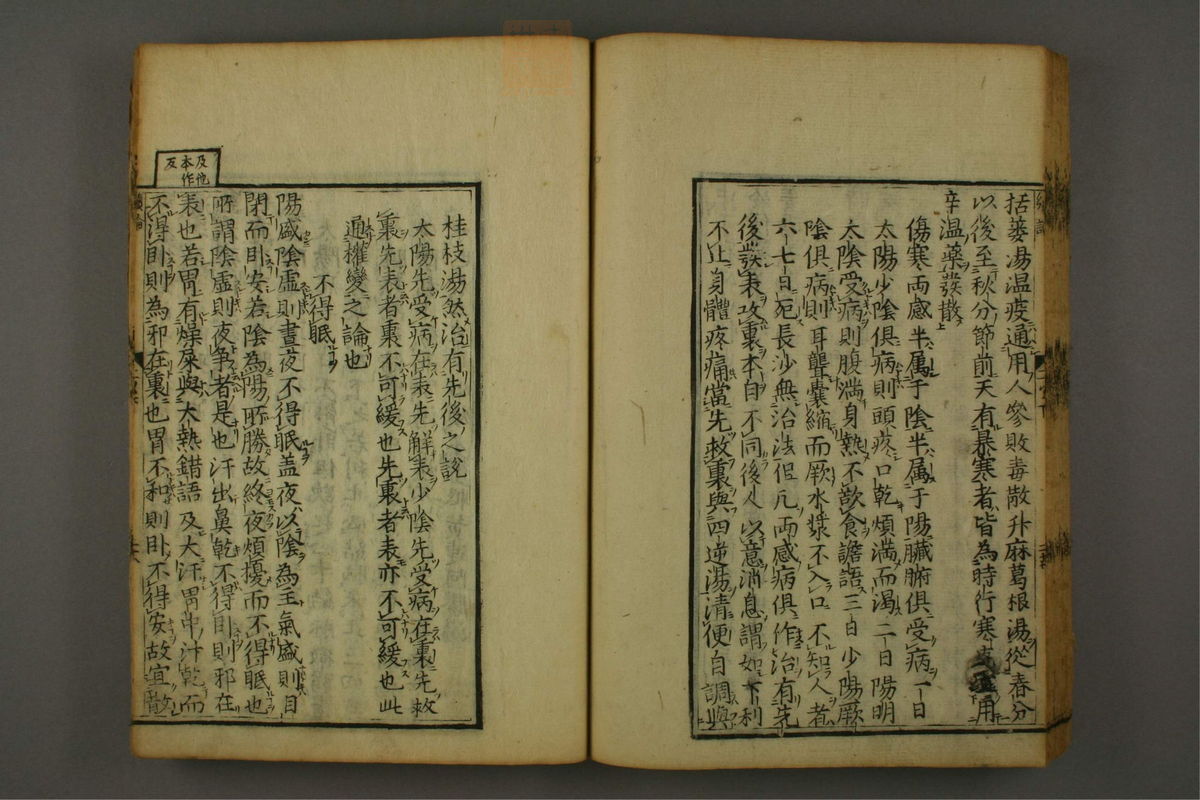 括蔞湯温疫通用人參敗毒散升麻葛根湯從春分
以後至秋分節前天有暴寒者皆為時行寒疫用
辛温藥發散
傷寒兩感半属于陰半属于陽臟腑俱受病一日
太陽少陰俱病則頭疼口乾煩満而渴二日陽明
太陰受病則腹満身熱不欲食譫語三日少陽厥
陰俱病則耳聾囊縮而厥水漿不入口不知人者
六七日死長沙無治法但凡兩感病俱作治有先
後發表攻裏本自不同後人以意消息謂如下利
不止身體疼痛當先救裏與四逆湯清便自調與
桂枝湯然治有先後之說
太陽先受病在表先解表少陰先受病在裏先救
裏先表者裏不可緩也先裏者表亦不可緩也此
通權變之論也
不得眠
陽盛陰虛則晝夜不得眠盖夜以陰為主氣盛則目
閉而卧安若陰為陽所勝故終夜煩擾而不得眠也
所謂陰虛則夜争者是也汗出鼻乾不得卧則邪在
表也若胃有燥屎與大熱錯語及大汗胃中汁乾而
不得卧則為邪在裏也胃不和則卧不得安故宜散
及他
本作
反